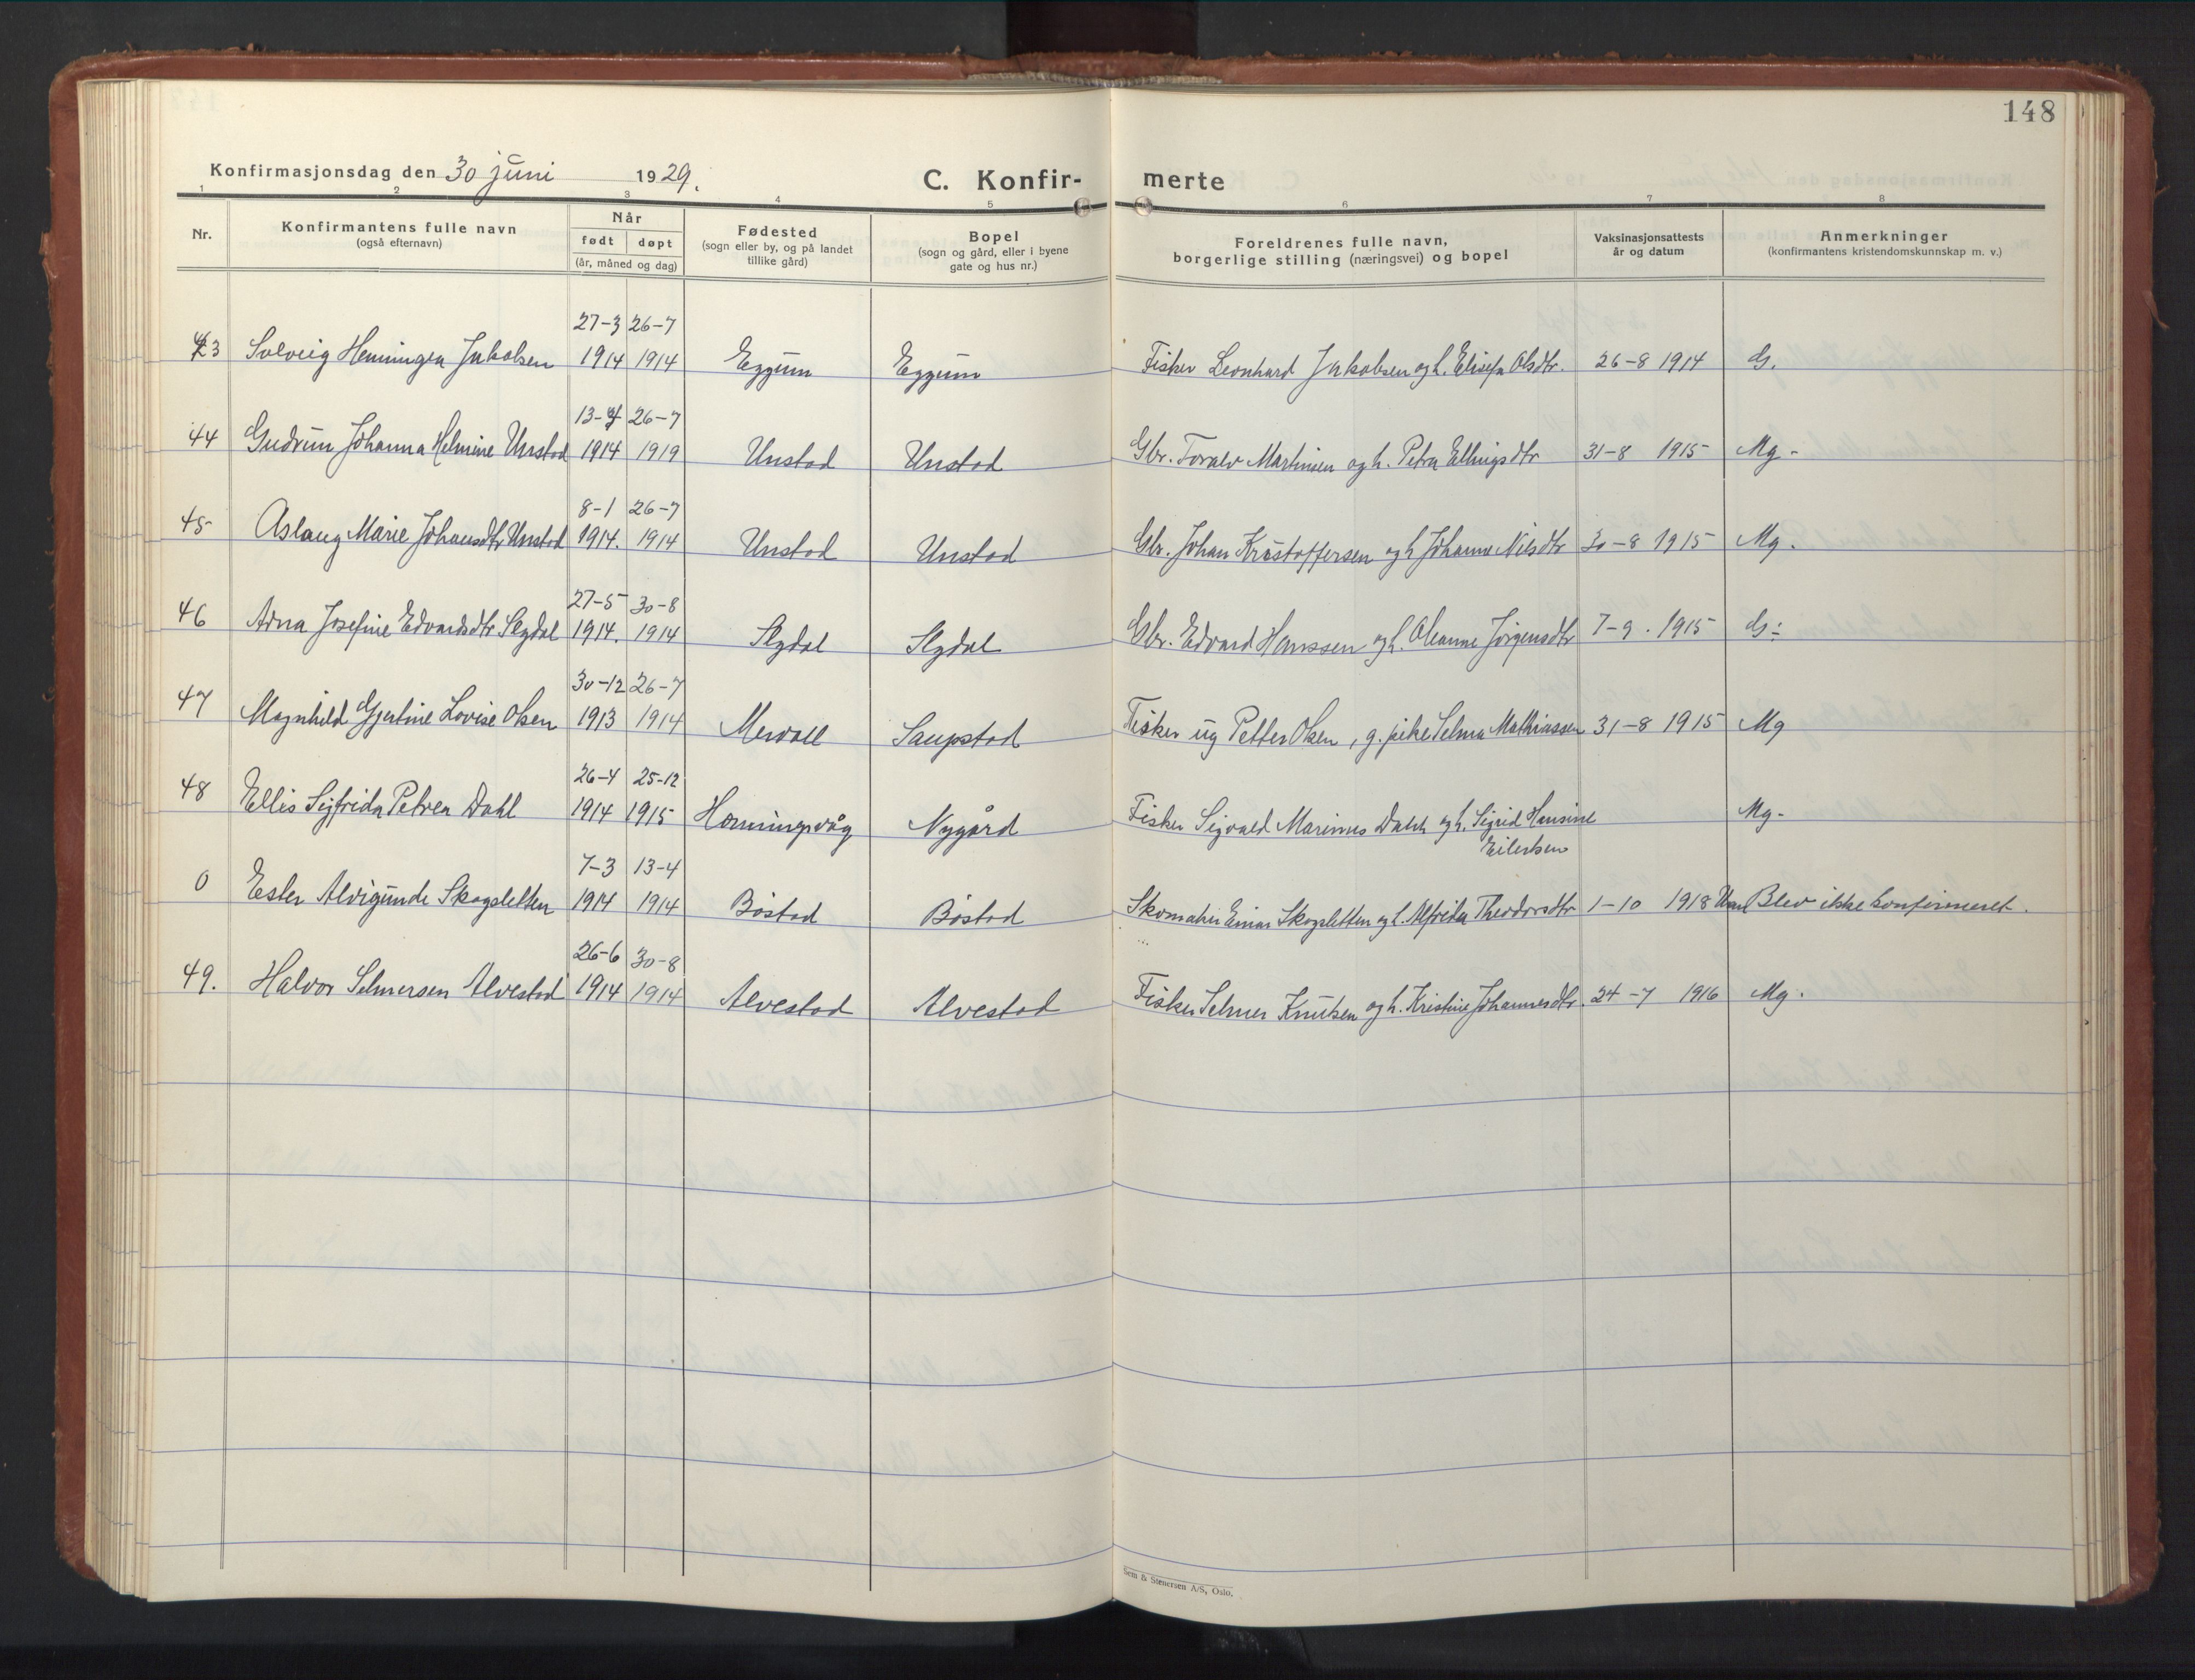 148
Konfirmasjonsdag den 30 juni 1929.
C. Konfir- merte
1 2 3 4 5 6 7 8
Nr.
Konfirmantens fulle navn
(også efternavn)
Når
født døpt
(år, måned og dag)
Fødested
(sogn eller by, og på landet
tillike gård)
Bopel
(sogn og gård, eller i byene
gate og hus nr.)
Foreldrenes fulle navn,
borgerlige stilling (næringsvei) og bopel
Vaksinasjonsattests
år og datum
Anmerkninger
(konfirmantens kristendomskunnskap m. v.)
27-3 26-7
43 Solveig Henningea Jakobsen 1914 1914 Eggum Eggum Fisker Leonhard Jakobsen og h. Elisefa Olsdtr. 26-8 1914 G.
13-4 26-7
44 Gudrun Johanna Helmine Unstad 1914 1919 Unstad Unstad Gbr. Toralv Martinsen og h. Petra Ellingsdtr 31-8 1915 Mg-
8-1 26-7
45 Aslaug Marie Johansdtr Unstad 1914. 1914 Unstad Unstad Gbr. Johan Kristoffersen og h Johanna Nilsdtr 30-8 1915 Mg.
27-5 30-8
46 Arna Josefine Edvardsdtr Slydal 1914. 1914 Slydal Slydal Gbr. Edvard Hanssen og h. Oleanna Jörgensdtr 7-9. 1915 G:
30-12 26-7
47 Magnhild Gjertine Lovise Olsen 1913 1914 Mervoll Saupstad Fisker ug Petter Olsen, g. pike Selma Mathiassen 31-8 1915 Mg
26-4 25-12
48 Ellis Sigfrida Petrea Dahl 1914 1915 Honningsvåg Nygård Fisker Sigvald Marinus Dahl og h. Sigrid Hansine Mg-
Eilertsen
7-3 13-4
0 Ester Alvigunde Skogsletten 1914 1914 Böstad Böstad Skomaker Einar Skogsletten og h. Alfrida Theodorsdtr 1-10 1918 Blev ikke konfirmeret.
26-6 30-8
49. Halvor Selmersen Alvestad 1914 1914 Alvestad Alvestad Fisker Selmer Knutsen og h. Kristine Johannesdtr. 24-7 1916 Mg.
Sem & Stenersen A/S, Oslo.